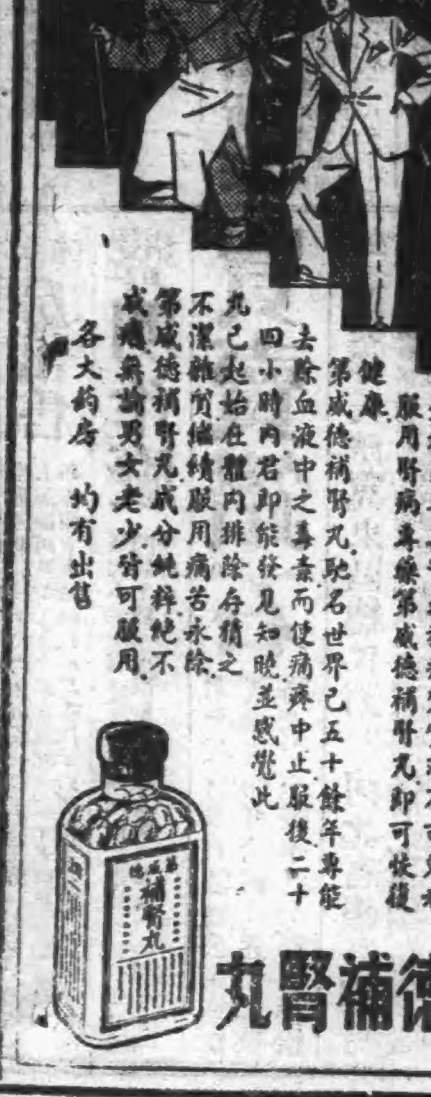 服用腎病專藥第威德補腎丸即可恢復
健康
第威德補腎丸馳名世界已五十餘年專能
去除血液中之毒素而使痛疼中止服後二十
四小時內君即能發見知曉並感覺此
丸已起始在體內排除存積之
不潔雜質繼續服用痛苦永除
第威德補腎丸成分純粹絕不
成癮無論男女老少皆可服用
各大药房 均有出售
第威德
補腎丸
德補腎丸